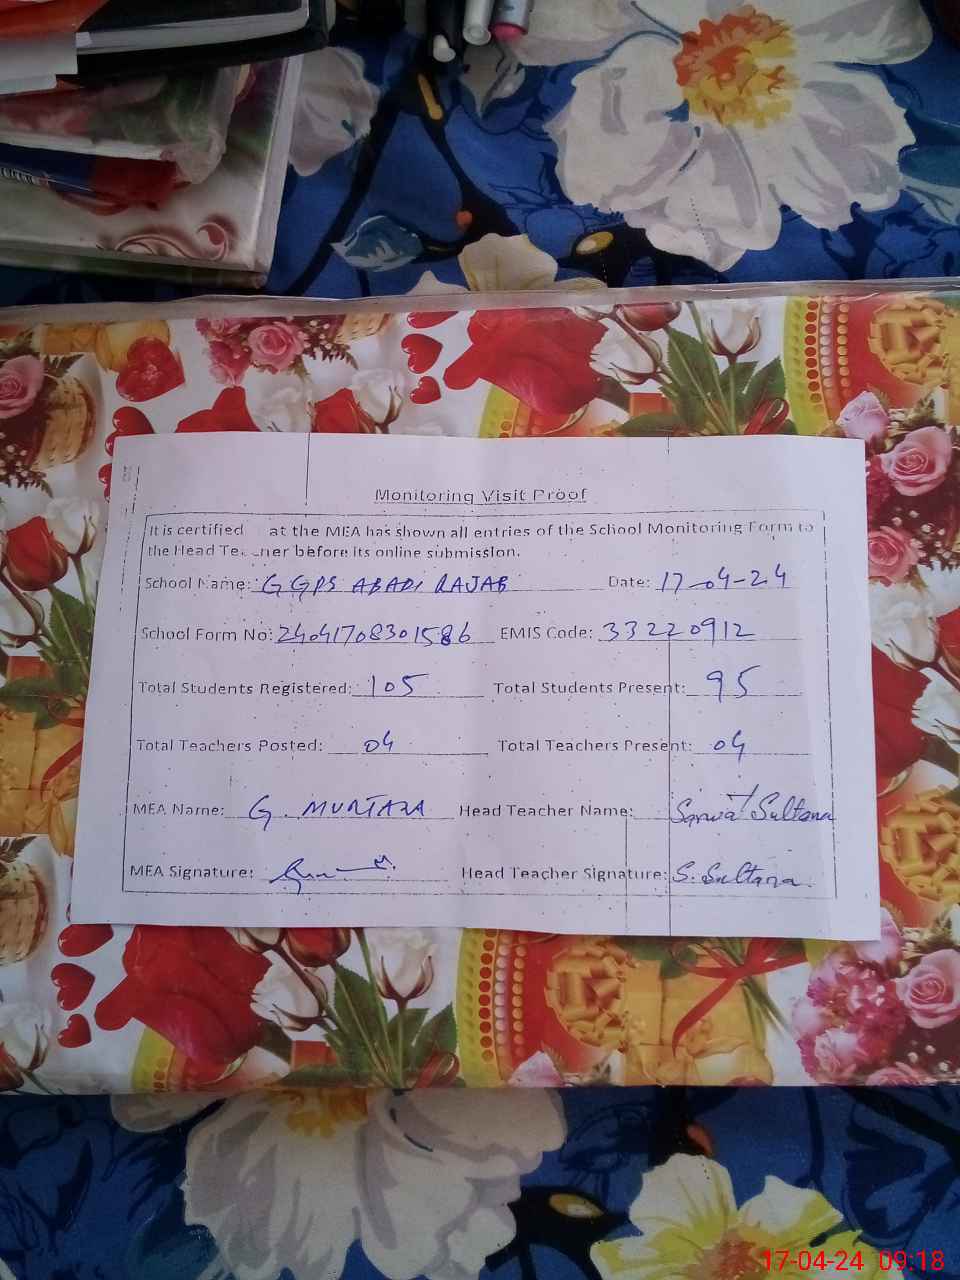 Monitoring Visit Proof
It is certified at the MEA has shown all entries of the School Monitoring Form to
the Head before its online submission.
School Name: GGPS ABADI RAJAB Date: 17-04-24
School Form No: 24041708301586 EMIS Code: 33220912
Total Students Registered: 105 Total Students Present: 95
Total Teachers Posted: 04 Total Teachers Present: 04
MEA Name: G. MURTAZA Head Teacher Name: Sarwat Sultana
MEA Signature: Head Teacher Signature: S. Sultana.
17-04-24 09:18